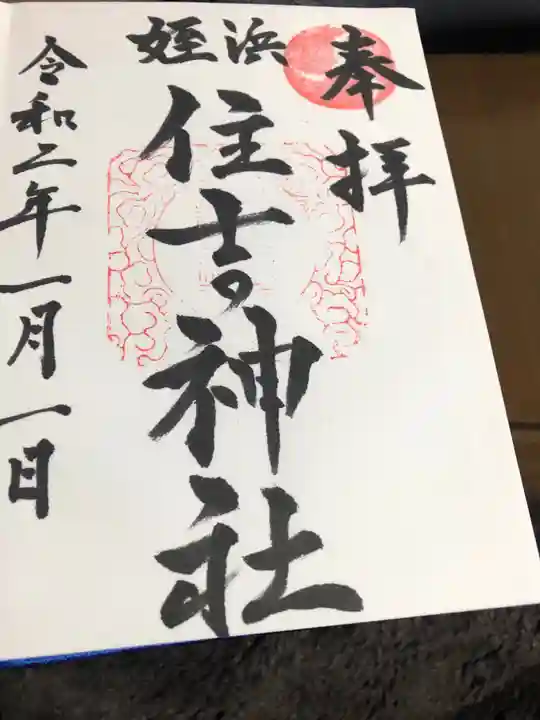 奉拝
姪浜
住吉神社
令和二年一月一日